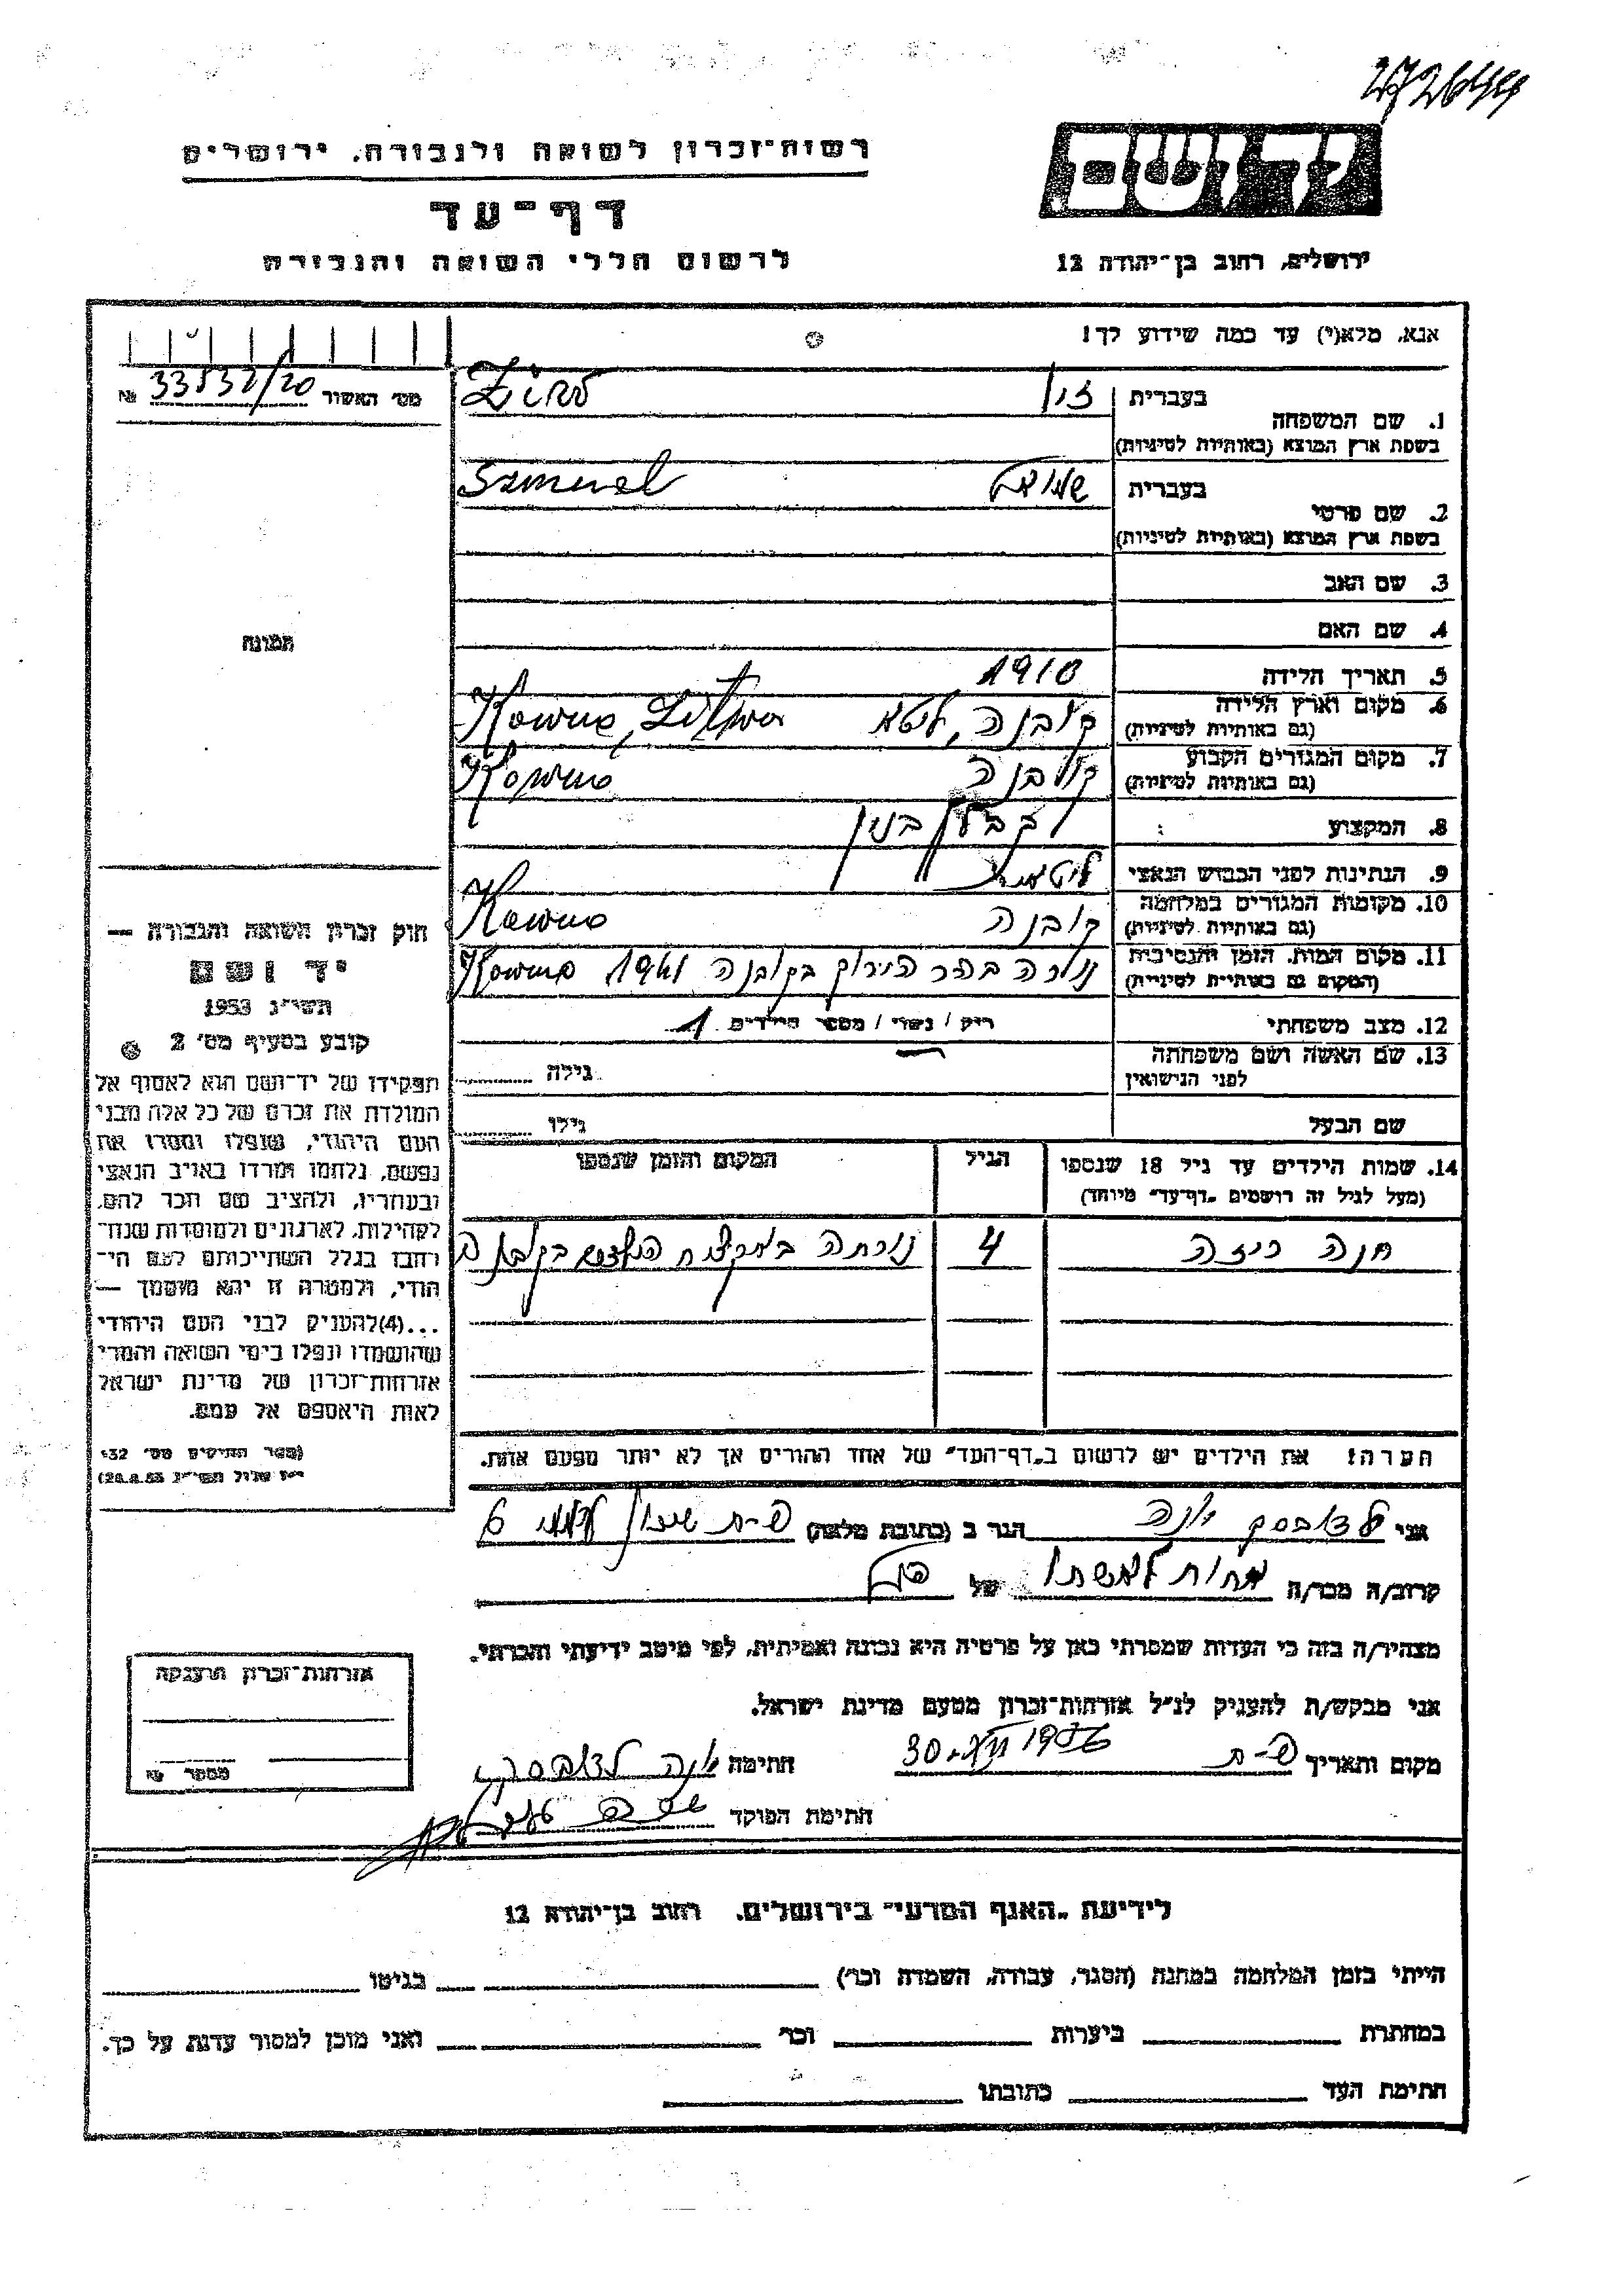 272644
רשות-זכרון לשואה ולגבורה, ירושלים
יד ושם
דף-עד
לרשום חללי השואה והגבורה
ירושלים, רחוב בן-יהודה 12
אנא, מלא(י) עד כמה שידוע לך!
מס' האשור 33532/20 №
1. שם המשפחה
בעברית
בשפת ארץ המוצא (באותיות לטיניות)
2. שם פרטי
בעברית שמואל Szmuel
בשפת ארץ המוצא (באותיות לטיניות)
3. שם האב
4. שם האם
תמונה
5. תאריך הלידה 1910
6. מקום וארץ הלידה קובנה, ליטא Kowno, Litwa
(גם באותיות לטיניות)
7. מקום המגורים הקבוע קובנה Kowno
(גם באותיות לטיניות)
8. המקצוע : קבלן בנין
9. הנתינות לפני הכבוש הנאצי ליטאית
10. מקומות המגורים במלחמה קובנה Kowno
(גם באותיות לטיניות)
11. מקום המות, הזמן והנסיבות נורה בקובנה 1941 Kowno
(המקום גם באותיות לטיניות)
12. מצב משפחתי רוק / נשוי / מספר הילדים 1
13. שם האשה ושם משפחתה גילה
לפני הנישואין
שם הבעל גילו
14. שמות הילדים עד גיל 18 שנספו הגיל המקום והזמן שנספו
(מעל לגיל זה רושמים „דף-עד" מיוחד)
חנה ריזה 4 נורתה בקובנה
הערה: את הילדים יש לרשום ב„דף-העד" של אחד ההורים אך לא יותר מפעם אחת.
חוק זכרון השואה והגבורה —
יד ושם
תשי"ג 1953
קובע בסעיף מס' 2
תפקידו של יד-ושם הוא לאסוף אל
המולדת את זכרם של כל אלה מבני
העם היהודי, שנפלו ומסרו את
נפשם, נלחמו ומרדו באויב הנאצי
ובעוזריו, ולהציב שם וזכר להם,
לקהילות, לארגונים ולמוסדות שנח־
רבו בגלל השתייכותם לעם הי־
הודי, ולמטרה זו יהא מוסמך —
...(4) להעניק לבני העם היהודי
שהושמדו ונפלו בימי השואה והמרי
אזרחות-זכרון של מדינת ישראל
לאות היאספם אל עמם.
(ספר החוקים מס' 132
י"ז אלול תשי"ג 28.8.53)
אני יונה הגר ב (כתובת מלאה) פ-ת 6
קרוב/ה מכר/ה אחות לאשתו של הנ"ל
מצהיר/ה בזה כי העדות שמסרתי כאן על פרטיה היא נכונה ואמיתית, לפי מיטב ידיעתי והכרתי.
אני מבקש/ת להעניק לנ"ל אזרחות-זכרון מטעם מדינת ישראל.
מקום ותאריך פ-ת 1956 30. חתימה יונה
חתימת הפוקד
אזרחות-זכרון הוענקה
מספר №
לידיעת „האגף המדעי" בירושלים, רחוב בן-יהודה 12
הייתי בזמן המלחמה במחנה (הסגר, עבודה, השמדה וכו') בגיטו
במחתרת ביערות וכו' ואני מוכן למסור עדות על כך.
חתימת העד כתובתו